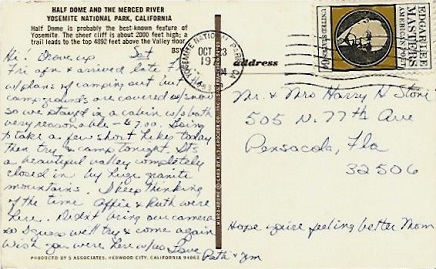 HALF DOME AND THE MERCED RIVER
YOSEMITE NATIONAL PARK, CALIFORNIA
Half Dome is probably the best known feature of
Yosemite. The sheer cliff is about 2000 feet high; a
trail leads to the top 4892 feet above the Valley floor.
Hi! Drove up Sat
Fri afn & arrived late
w/plans of camping out but
campgrounds are covered w/snow
so we stayed in a cabin w/o bath
very reasonable - $7.00. Going
to take a few short hikes today
then try & camp tonight. It's
a beautiful valley completely
closed in by huge granite
mountains. I keep thinking
of the time Ollie & Ruth were
here. Didn't bring our camera
so guess we'll try & come again
Wish you were here w/us Love
Pat & Jim
PRODUCED BY S ASSOCIATES, REDWOOD CITY, CALIFORNIA 94063
YOSEMITE NATIONAL PARK, CA
OCT
197
address
EDGAR LEE
MASTERS
AMERICAN POET
UNITED STATES
Mr. & Mrs Harry H Stone
505 N. 77th Ave
Pensacola, Fla
32506
Hope you're feeling better Mom